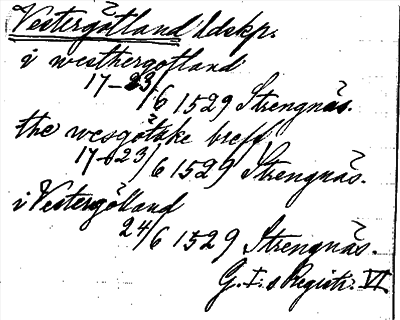 Vestergötland ldskp.
i westhergotland
17-23/6 1529 Strengnäs.
the wesgötske breff
17-23/6 1529 Strengnäs.
i Vestergötland
24/6 1529 Strengnäs.
G. I:s Registr. VI